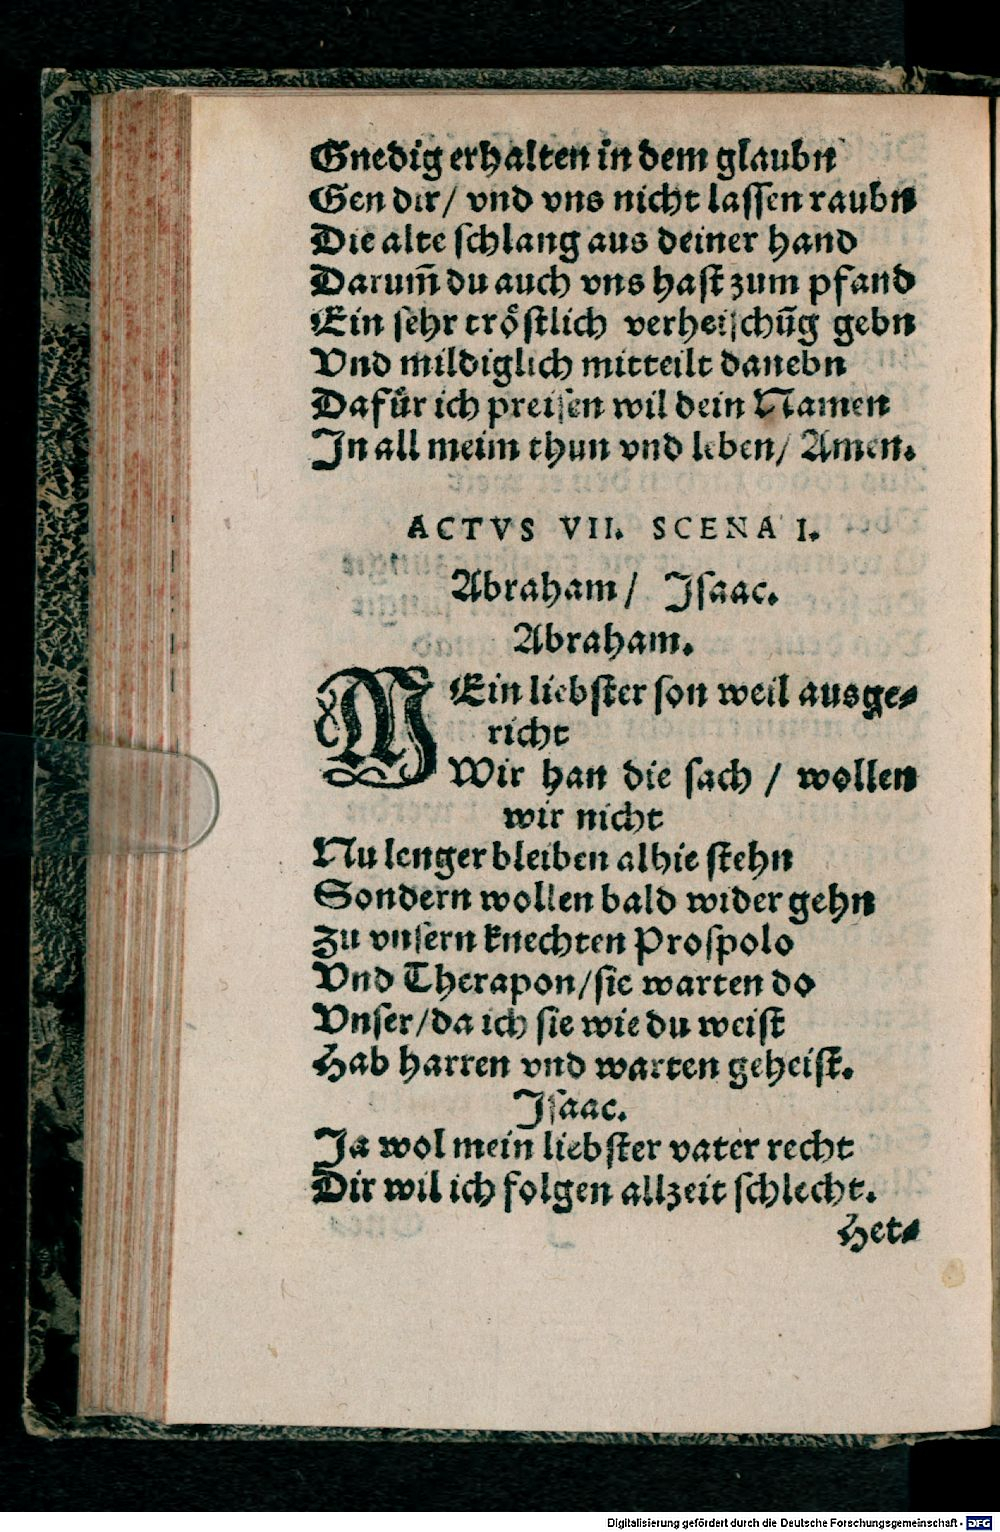 Gnedig erhalten in dem glaubn
Gen dir / vnd vns nicht lassen raubn
Die alte schlang aus deiner hand
Darum̃ du auch vns hast zum pfand
Ein sehr troͤstlich verheischũg gebn
Vnd mildiglich mitteilt danebn
Dafuͤr ich preisen wil dein Namen
In all meim thun vnd leben / Amen.
ACTVS VII. SCENA I.
Abraham / Isaac.
Abraham.
MEin liebster son weil ausge-
richt
Wir han die sach / wollen
wir nicht
Nu lenger bleiben alhie stehn
Sondern wollen bald wider gehn
Zu vnsern knechten Prospolo
Vnd Therapon / sie warten do
Vnser / da ich sie wie du weist
Hab harren vnd warten geheist.
Isaac.
Ja wol mein liebster vater recht
Dir wil ich folgen allzeit schlecht.
Het-
Digitalisierung gefördert durch die Deutsche Forschungsgemeinschaft - DFG